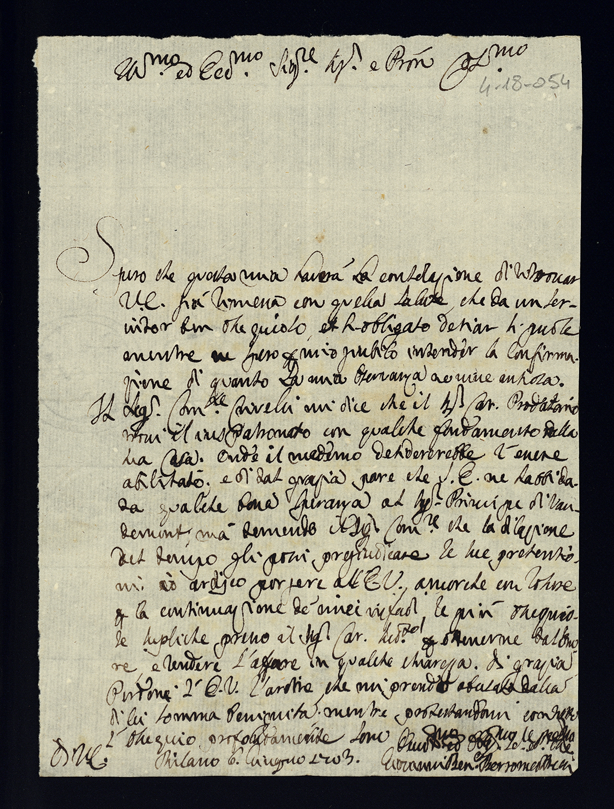 Ill.mo ed Ecc.mo Sig.re Sig.r e Pron Col.mo
4-18-054
Spero che questa mia haverà la consolazione di ritrovar
V.E. già rimessa con quella salute, che da un ser-
vitor ben ossequioso, et obligato desiar si puole
mentre ne spero mio giubilo intender la confirma-
zione di quanto la mia osservanza
Il Sig. Con.te Crivelli mi dice che il Sig. Car. Prodatario
il iuspatronato con qualche fondamento della
sua Casa. Onde il medemo desidererebbe l'esserne
abilitato. e di tal grazia pare che S.E. ne habbi da-
ta qualche bona speranza al Sig. Principe di Vau-
demont, mà temendo il Sig. Con.te che la dilazione
del tempo gli possi pregiudicare le sue pretensio-
ni io ardisco porgere all'E.V. ancorche con
la continuazione de miei le più ossequio-
se supliche presso il Sig. Car. ottenerne
re e rendere l'affare in qualche chiarezza. Di grazia
Perdoni l'E.V. l'ardire che mi prendo abusato dalla
di lei somma benignità. mentre protestandomi con tutto
l'ossequio profondamente sono
D.V.E. Milano 6 Giugno 1703.
Giovanni